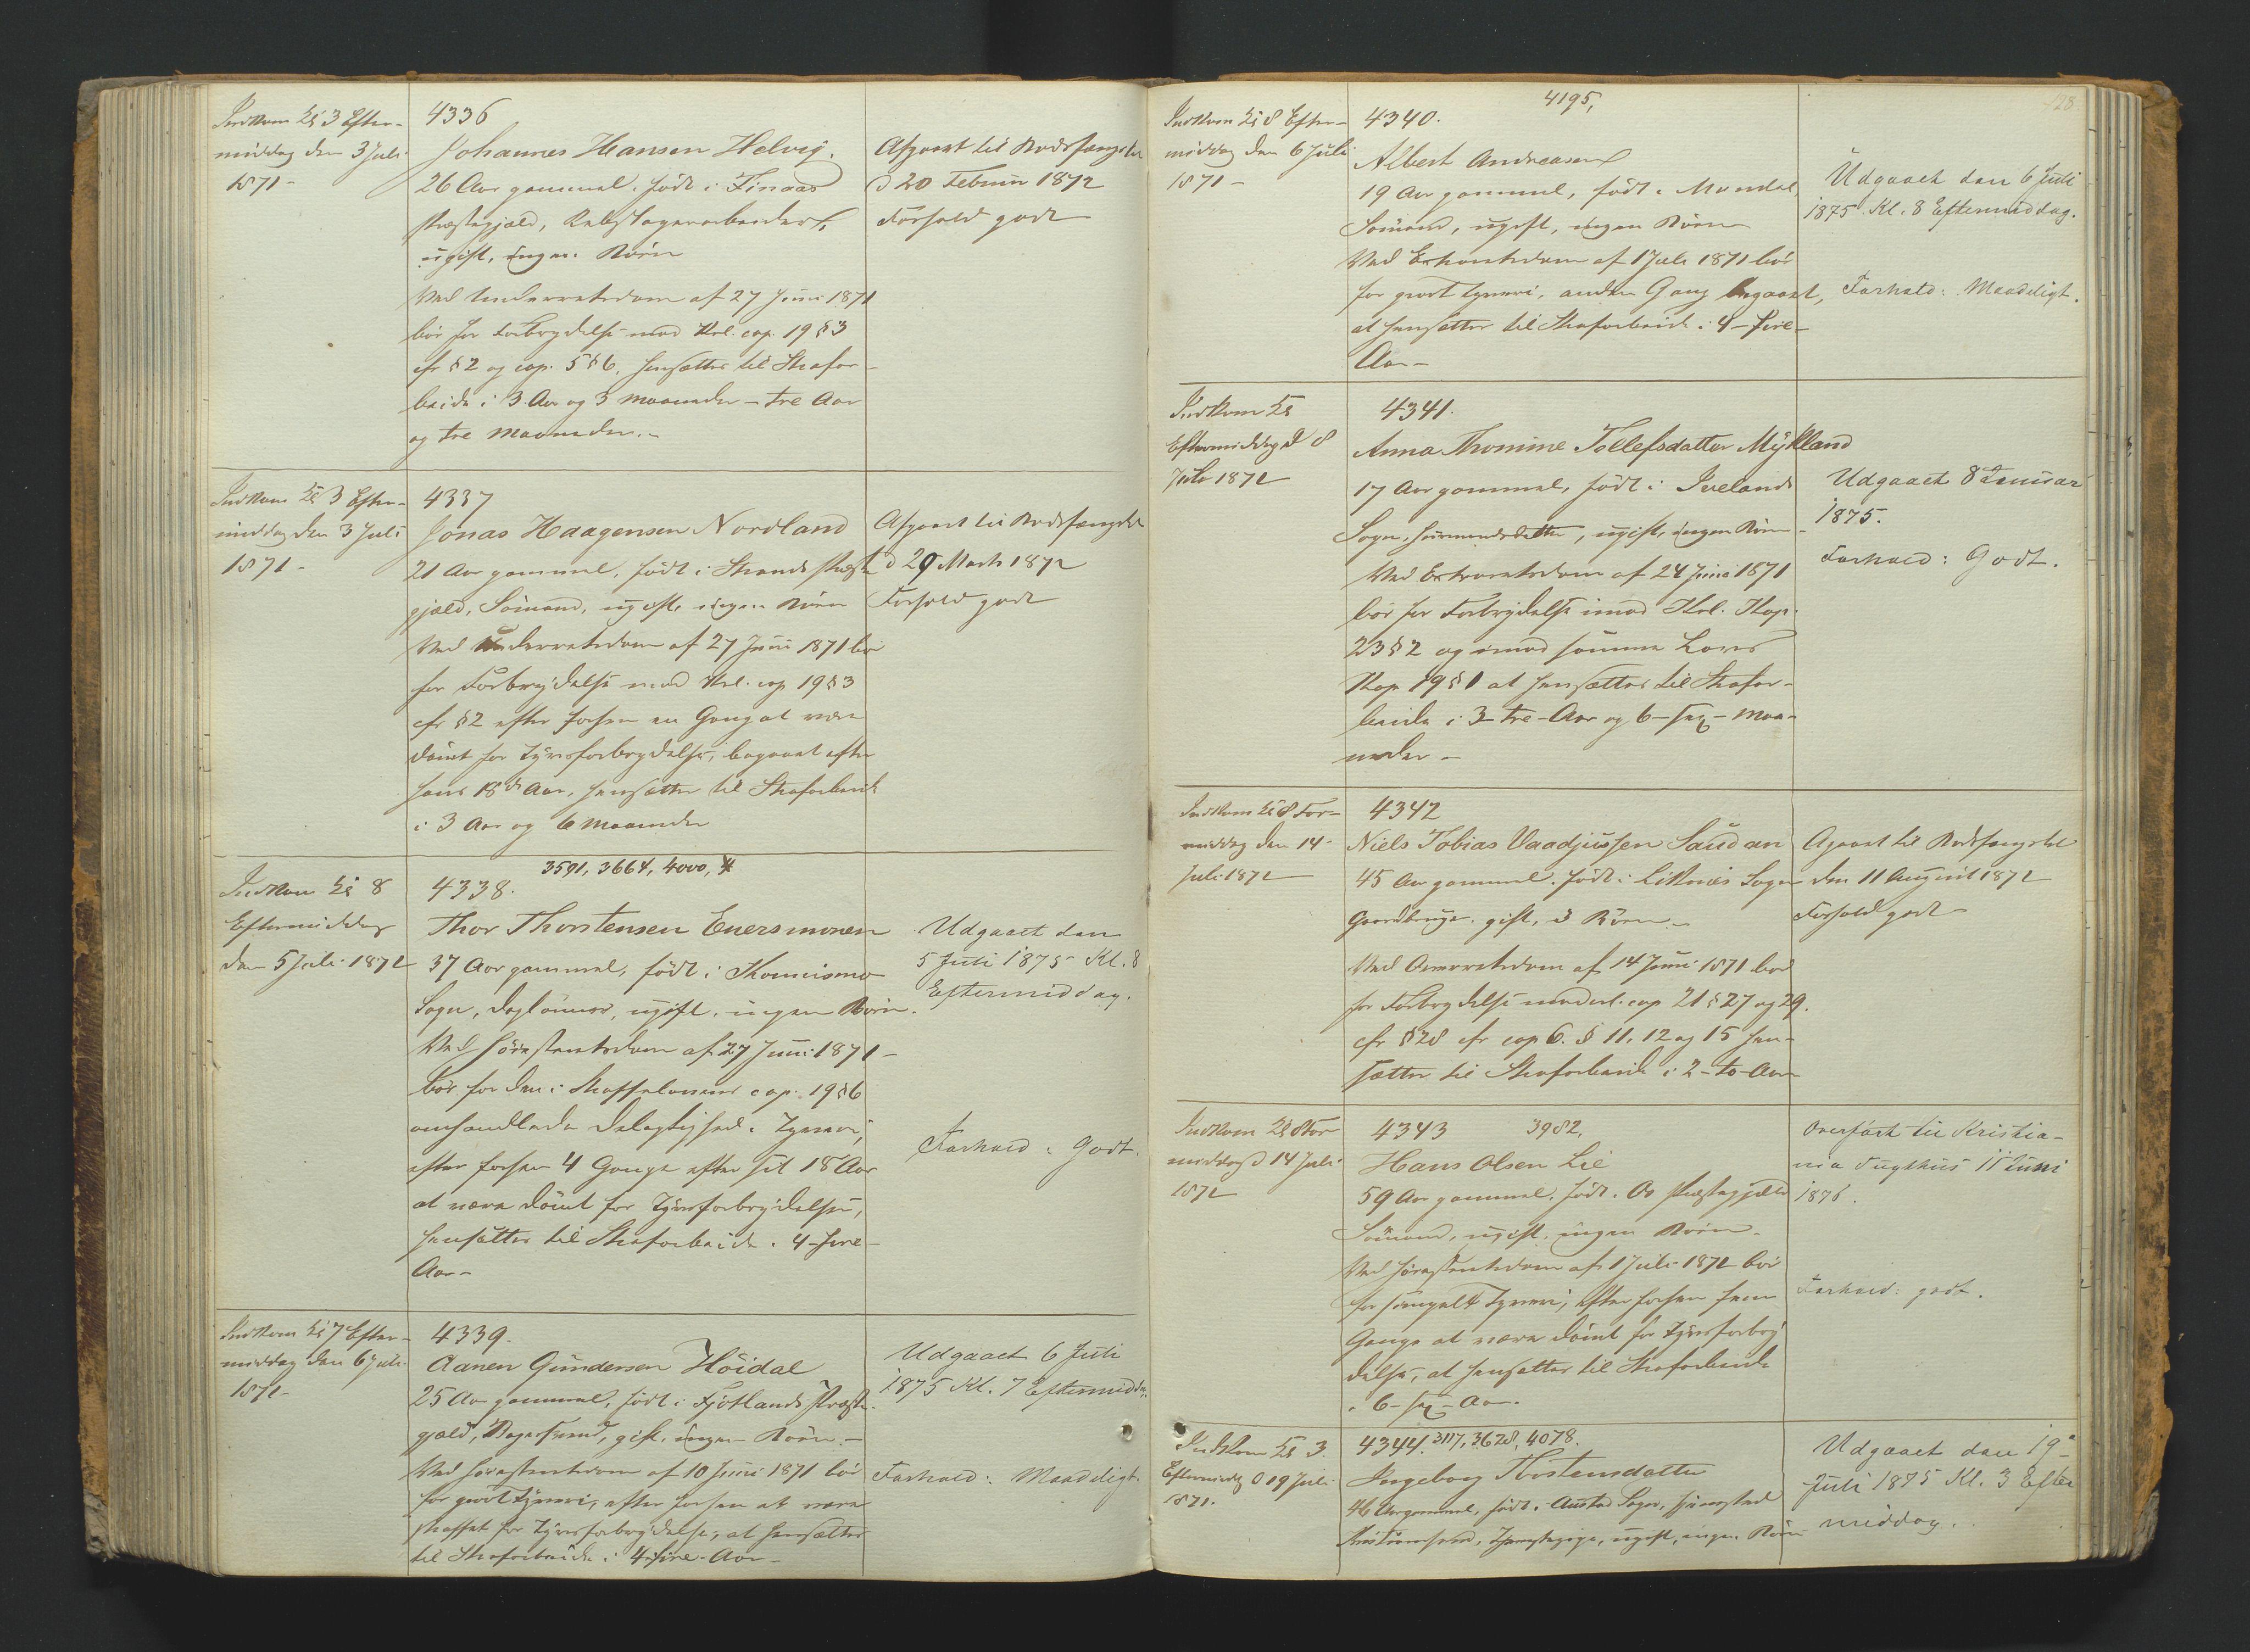 Indkom Kl 3 Efter-
middag den 3 Juli
1871 -
4336
Johannes Hansen Helvig.
26 Aar gammel. född i Finaas
Præstegjæld, Rebslagerarbeider,
ugift, ingen Börn
Ved Underretsdom af 27 Juni 1871
bör for Forbrydelse mod Krl. cap. 19 § 3
cfr § 2 og cap. 5 § 6, hensættes til Strafar-
beide i 3 Aar og 3 Maaneder - tre Aar
og tre Maaneder. -
Afgaaet til Bodsfængslet
d 20 Februar 1872
Forhold godt
Indkom Kl 3 Efter-
middag den 3 Juli
1871 -
4337
Jonas Haagensen Nordland
21 Aar gammel, född i Strands Præste
gjæld, Sömand, ugift, ingen Börn
Ved Underretsdom af 27 Juni 1871 bör
for Forbrydelse mod Krl. cap 19 § 3
cfr § 2 efter forhen en Gang at være
dömt for Tyvsforbrydelse, begaaet efter
hans 18de Aar, hensættes til Strafarbeide
i 3 Aar og 6 Maaneder
Afgaaet til Bodsfængslet
d 29 Marts 1872
Forhold godt
Indkom Kl 8
Eftermiddag
den 5 Juli 1871
3591, 3664, 4000,
4338.
Thor Thorstensen Euersmonen
37 Aar gammel, född i
Sogn, Daglönner, ugift, ingen Börn.
Ved Höiesteretsdom af 27 Juni 1871 -
bör for den i Straffelovens cap. 19 § 6
omhandlede Delagtighed i Tyveri,
efter forhen 4 Gange efter sit 18 Aar
at være dömt for Tyvsforbrydelse,
hensættes til Strafarbeide i 4 - fire -
Aar -
Udgaaet den
5 Juli 1875 Kl. 8
Eftermiddag.
Forhold: Godt.
Indkom Kl 7 Efter-
middag den 6 Juli
1871 -
4339.
Aanen Gundersen Höidal
25 Aar gammel, född i Fjotlands Præste-
gjæld, Bagersvend, gift, ingen Börn. -
Ved Höiesteretsdom af 10 Juni 1871 bör
for grovt Tyveri, efter forhen at være
straffet for Tyvsforbrydelse, at hensættes
til Strafarbeide i 4 - fire - Aar -
Udgaaet 6 Juli
1875 Kl. 7 Eftermidd.
Forhold: Maadeligt.
128
Indkom Kl 8 Efter-
middag den 6 Juli
1871 -
4195,
4340.
Albert Andreasen
19 Aar gammel, född i Mandal,
Sömand, ugift, ingen Börn
Ved Extraretsdom af 1 Juli 1871 bör
for grovt Tyveri, anden Gang begaaet,
at hensættes til Strafarbeide i 4 - fire -
Aar -
Udgaaet den 6 Juli
1875. Kl. 8 Eftermiddag.
Forhold: Maadeligt.
Indkom Kl
Eftermiddag d 8
Juli 1871
4341.
Anna Thomine Tollefsdatter Mykland
17 Aar gammel, född i Ivelands
Sogn, Huusmandsdatter, ugift, ingen Börn -
Ved Extraretsdom af 24 Juni 1871
bör for Forbrydelse imod Krl. Kap.
23 § 2 og imod samme Lovs
Kap 19 § 1 at hensættes til Strafar-
beide i 3 - tre - Aar og 6 - sex - Maa-
neder -
Udgaaet 8 Januar
1875.
Forhold: Godt.
Indkom Kl 8 For-
middag den 14
Juli 1871
4342
Niels Tobias Vaadjussen Saudan
45 Aar gammel. född i Liknæs Sogn
Gaardbruger, gift, 3 Börn -
Ved Overretsdom af 14 Juni 1871 bör
for Forbrydelse mod crl. cap 21 § 27 og 29.
cfr § 28 cfr cap 6. § 11, 12 og 15 hen-
sættes til Strafarbeide i 2 - to - Aar
Afgaaet til Bodsfængslet
den 11 August 1871
Forhold godt
Indkom Kl 8 For-
middag d 14 Juli
1871
4343 3982.
Hans Olsen Lie
59 Aar gammel, född i Os Præstegjæld
Sömand, ugift, ingen Börn -
Ved Höiesteretsdom af 1 Juli 1871 bör
for simpelt Tyveri, efter forhen fem
Gange at være dömt for Tyvsforbry-
delse, at hensættes til Strafarbeide
i 6 - sex - Aar.
Overfört til Kristia-
nia Tugthus 11 Juni
1876.
Forhold: godt.
Indkom Kl 3
Eftermiddag d 19 Juli
1871.
4344. 3117, 3628, 4078.
Ingeborg Torstensdatter
46 Aar gammel, född i Austad Sogn, hjemsted
Kristianssand, Tjenestepige, ugift, ingen Börn
Udgaaet den 19de
Juli 1875 Kl. 3 Efter
middag.